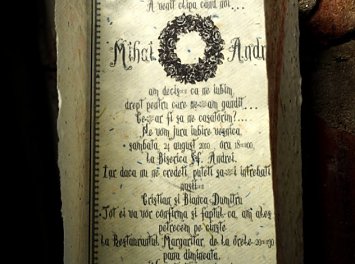 A venit clipa când noi...
Mihai Andr
am decis ca ne iubim,
drept pentru care ne-am gândit...
Ce-ar fi sa ne casatorim?...
Ne vom jura iubire vesnica,
sambata, 21 august 2010, ora 18:00,
La Biserica Sf. Andrei.
Iar daca nu ne credeti, puteti sa-i intrebati
Cristian si Bianca Dumitru
Tot ei va vor confirma si faptul ca, am ales
petrecem cu
La Restaurantul Margaritar, de la orele 20:30
pana dimineata.